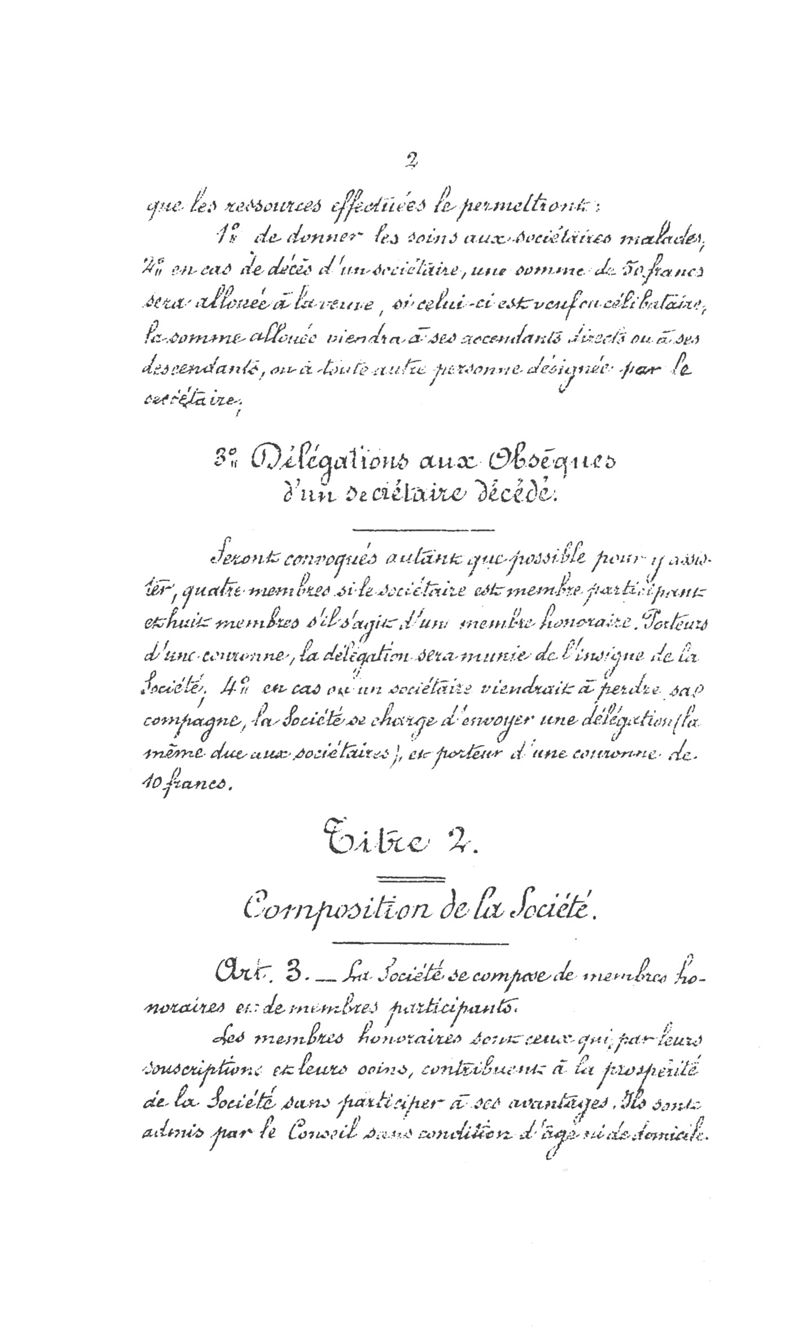 2
que les ressources effectuées le permettront :
1º de donner les soins aux sociétaires malades,
2º en cas de décès d'un sociétaire, une somme de 50 francs
sera allouée à la veuve, si celui-ci est veuf ou célibataire,
la somme allouée viendra à ses accendants directs ou à ses
descendants, ou à toute autre personne désignée par le
secrétaire;
3º Délégations aux Obsèques
d'un sociétaire décédé.
Seront convoqués autant que possible pour y assis-
ter, quatre membres si le sociétaire est membre participant
et huit membres s'il s'agit d'un membre honoraire. Porteurs
d'une couronne, la délégation sera munie de l'insigne de la
Société; 4º en cas où un sociétaire viendrait à perdre sa
compagne, la Société se charge d'envoyer une délégation (la
même due aux sociétaires), et porteur d'une couronne de
10 francs.
Titre 2.
Composition de la Société.
Art. 3. — La Société se compose de membres ho-
noraires et de membres participants.
Les membres honoraires sont ceux qui, par leurs
souscriptions et leurs soins, contribuent à la prospérité
de la Société sans participer à ses avantages. Ils sont
admis par le Conseil sans condition d'âge ni de domicile.